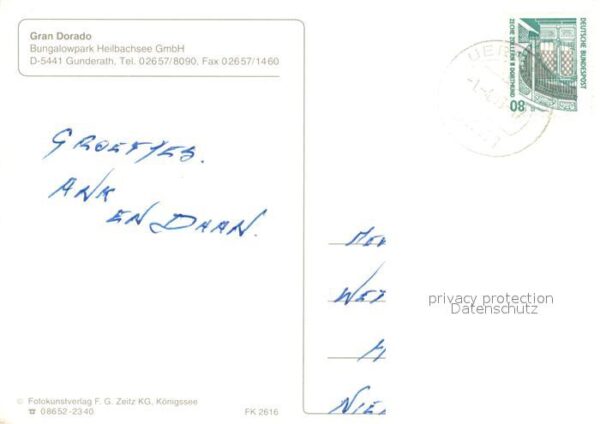 Gran Dorado
Bungalowpark Heilbachsee GmbH
D-5441 Gunderath, Tel. 02657/8090, Fax 02657/1460
DEUTSCHE BUNDESPOST
ZECHE ZOLLERN II DORTMUND
80
GROETJES.
ANK
EN DAAN.
privacy protection
Datenschutz
© Fotokunstverlag F. G. Zeitz KG. Königssee
☎ 08652-2340
FK 2616